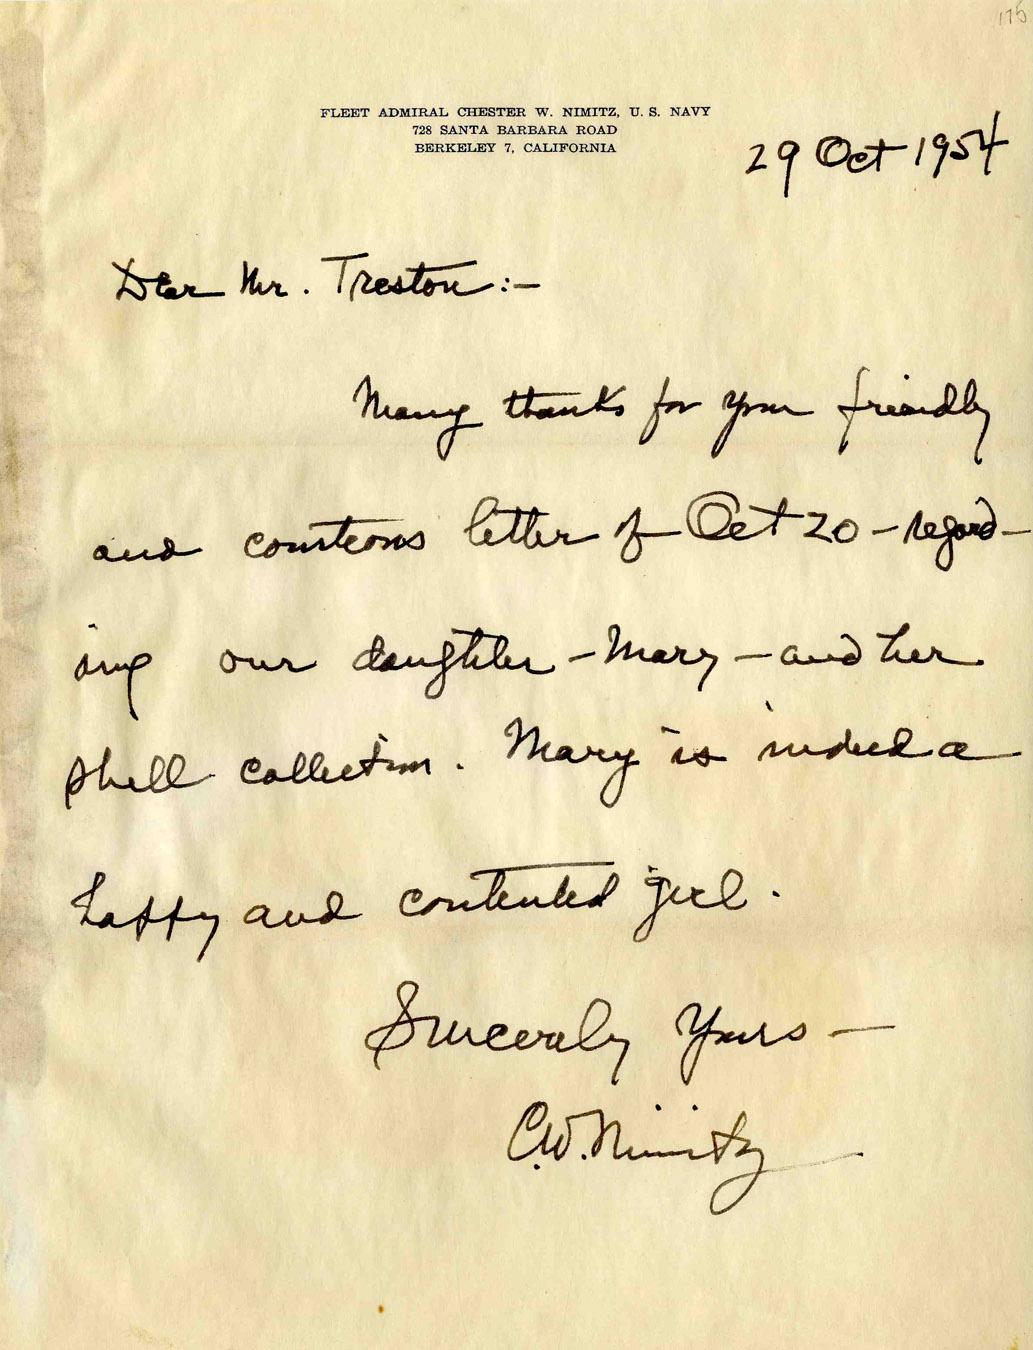 175
FLEET ADMIRAL CHESTER W. NIMITZ, U. S. NAVY
728 SANTA BARBARA ROAD
BERKELEY 7, CALIFORNIA
29 Oct 1954
Dear Mr. Treston:-
Many thanks for your friendly
and courteous letter of Oct 20 - regard-
ing our daughter - Mary - and her
shell collection. Mary is indeed a
happy and contented girl.
Sincerely Yours -
C.W. Nimitz